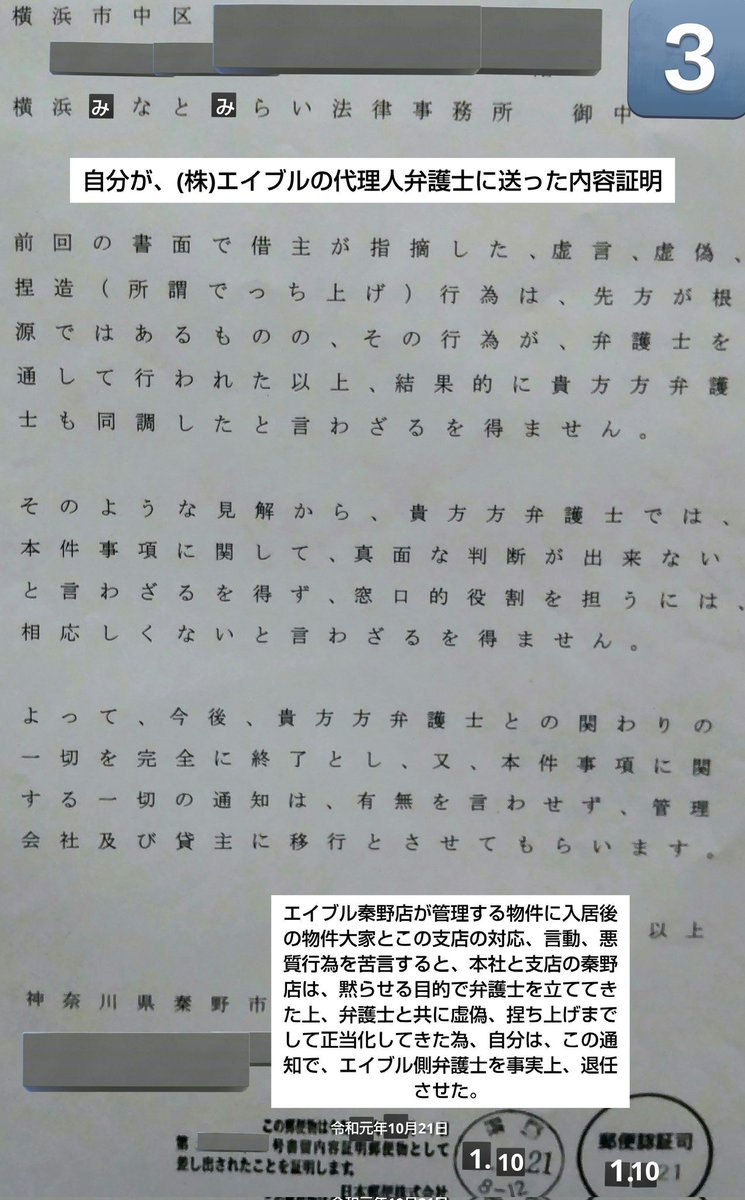 横浜市中区
3
横浜みなとみらい法律事務所 御中
自分が、(株)エイブルの代理人弁護士に送った内容証明
前回の書面で借主が指摘した、虚言、虚偽、
捏造(所謂でっち上げ)行為は、先方が根
源ではあるものの、その行為が、弁護士を
通して行われた以上、結果的に貴方方弁護
士も同調したと言わざるを得ません。
そのような見解から、貴方方弁護士では、
本件事項に関して、真面な判断が出来ない
と言わざるを得ず、窓口的役割を担うには、
相応しくないと言わざるを得ません。
よって、今後、貴方方弁護士との関わりの
一切を完全に終了とし、又、本件事項に関
する一切の通知は、有無を言わせず、管理
会社及び貸主に移行とさせてもらいます。
以上
エイブル秦野店が管理する物件に入居後
の物件大家とこの支店の対応、言動、悪
質行為を苦言すると、本社と支店の秦野
店は、黙らせる目的で弁護士を立ててき
た上、弁護士と共に虚偽、捏ち上げまで
して正当化してきた為、自分は、この通
知で、エイブル側弁護士を事実上、退任
させた。
神奈川県秦野市
この郵便物は令和元年10月21日
第 号書留内容証明郵便物として
差し出されたことを証明します。
日本郵便株式会社
1.10 21
8-12
郵便認証司
1.10 21
令和元年10月21日